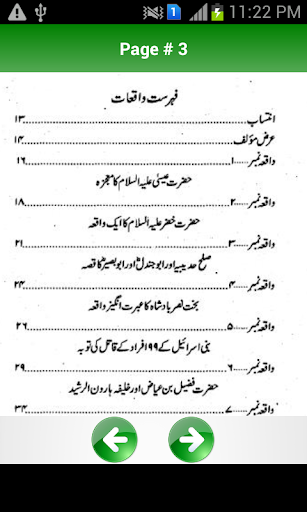 11:22 PM
Page # 3
فہرست واقعات
انتساب ............ ۱۳
عرض مؤلف ............ ۱۴
واقعہ نمبر ۱ ............ ۱۶
حضرت عیسیٰ علیہ السلام کا معجزہ
واقعہ نمبر ۲ ............ ۱۸
حضرت خضر علیہ السلام کا ایک واقعہ
واقعہ نمبر ۳ ............ ۲۱
صلح حدیبیہ اور ابو جندلؓ اور ابو بصیرؓ کا قصہ
واقعہ نمبر ۴ ............ ۲۴
بخت نصر بادشاہ کا عبرت انگیز واقعہ
واقعہ نمبر ۵ ............ ۲۶
بنی اسرائیل کے ۹۹ افراد کے قاتل کی توبہ
واقعہ نمبر ۶ ............ ۲۹
حضرت فضیل بن عیاض اور خلیفہ ہارون الرشید
واقعہ نمبر ۷ ............ ۳۴